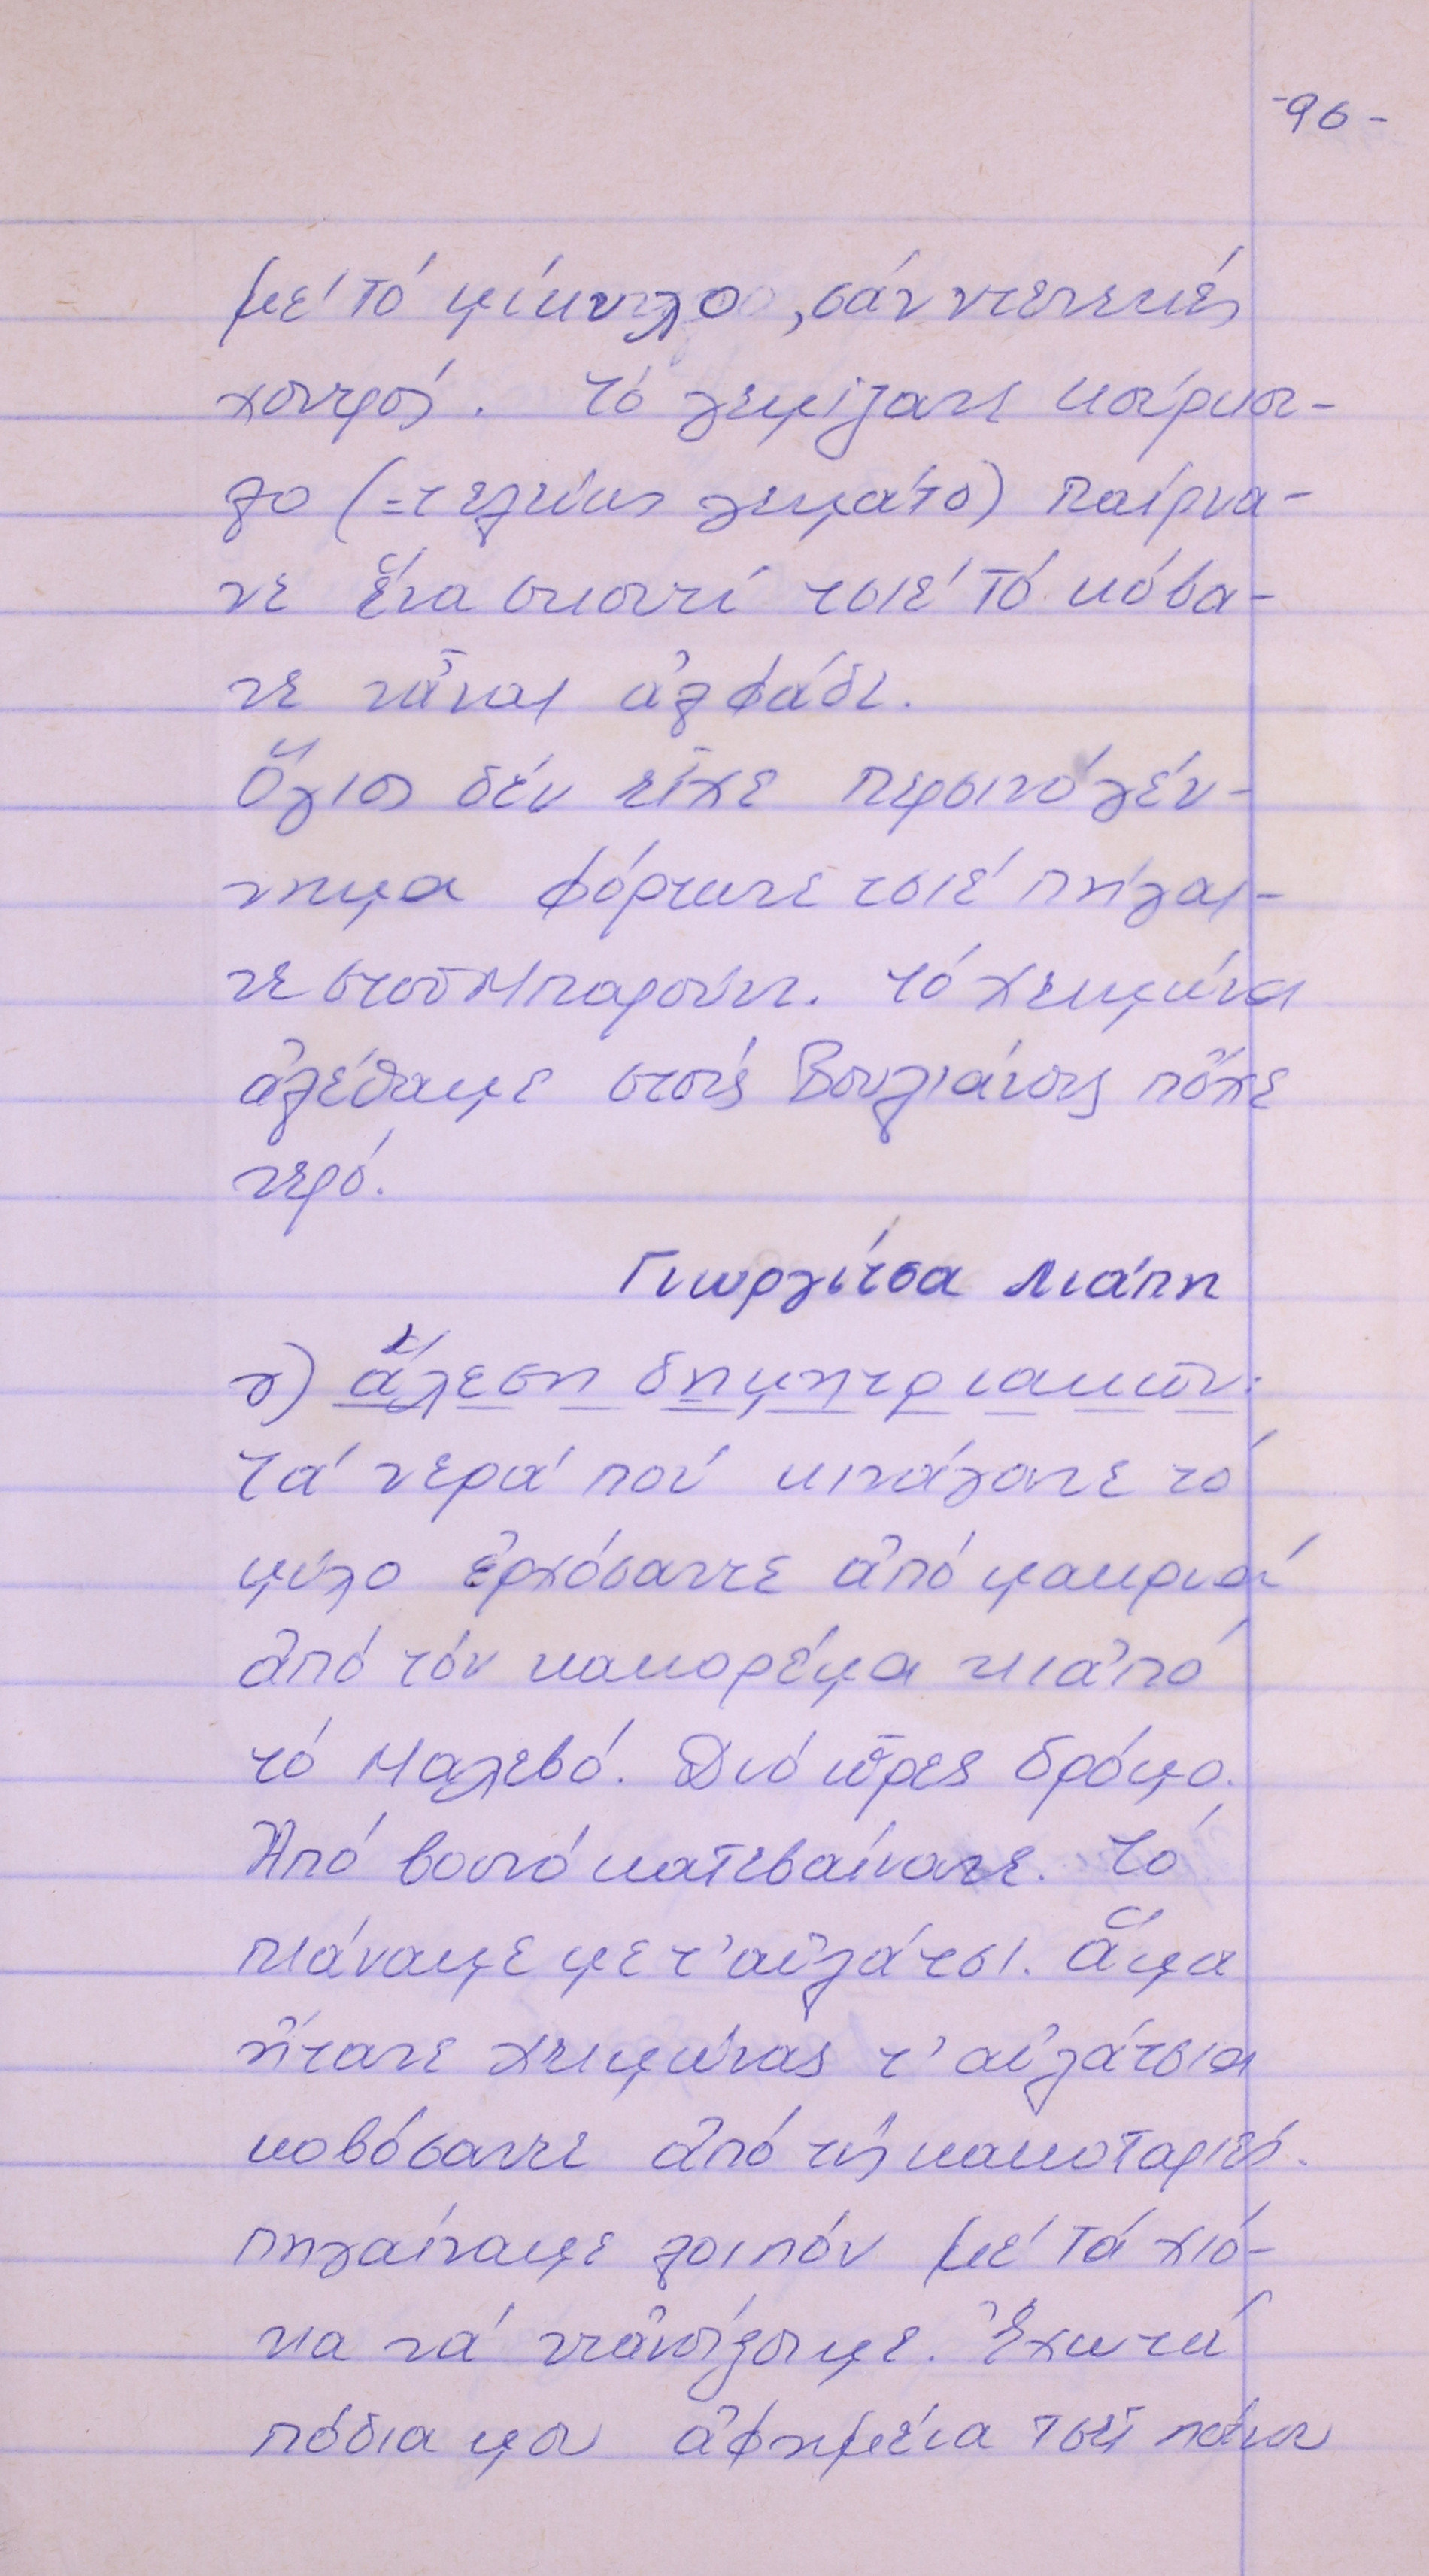 -96-
μέ τό μίκυλο, σάν ντενεκές
χοντρός. Τό γεμίζανε κούρκου-
λο (=τελείως γεμάτο) παίρνα-
νε ἕνα σκουτί τσιέ τό κόβα-
νε νἆναι ἀλφάδι.
Ὅγιος δέν εἶχε περσινό γέν-
νημα φόρτωνε τσιέ πήγαι-
νε στοῦ Μπαρούνη. Τό χειμώνα
ἀλέθαμε στούς Βουλιάνους πὄχε
νερό.
Γιωργίτσα Λιάπη
γ) ἄλεση δημητριακῶν.
Τά νερά πού κινάγανε τό
μύλο ἐρχόσαντε ἀπό μακρυά
ἀπό τόν κακορέμα κι ἀπό
τό Μαλεβό. Διό ὧρες δρόμο.
Ἀπό βουνό κατεβαίνανε. Τό
πιάναμε με τ' αὐλάτσι. Ἅμα
ἤτανε χειμώνας τ' αὐλάτσια
κοβόσαντε ἀπό τίς κακοταριές.
Πηγαίναμε λοιπόν μέ τά χιό-
νια νά ντἀνοίξουμε. Ἔχω τά
πόδια μου ἀφημένα τσεῖ πάνου